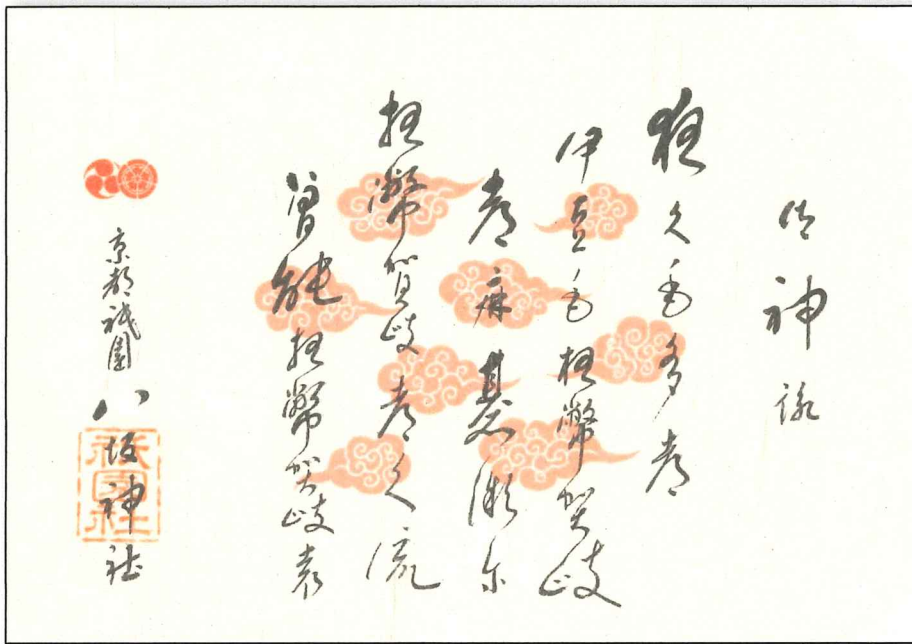 御神詠
夜久毛多都
伊豆毛夜幣賀岐
都麻碁微尓
夜幣賀岐都久流
曽能夜幣賀岐袁
京都祇園 八坂神社
祇園社